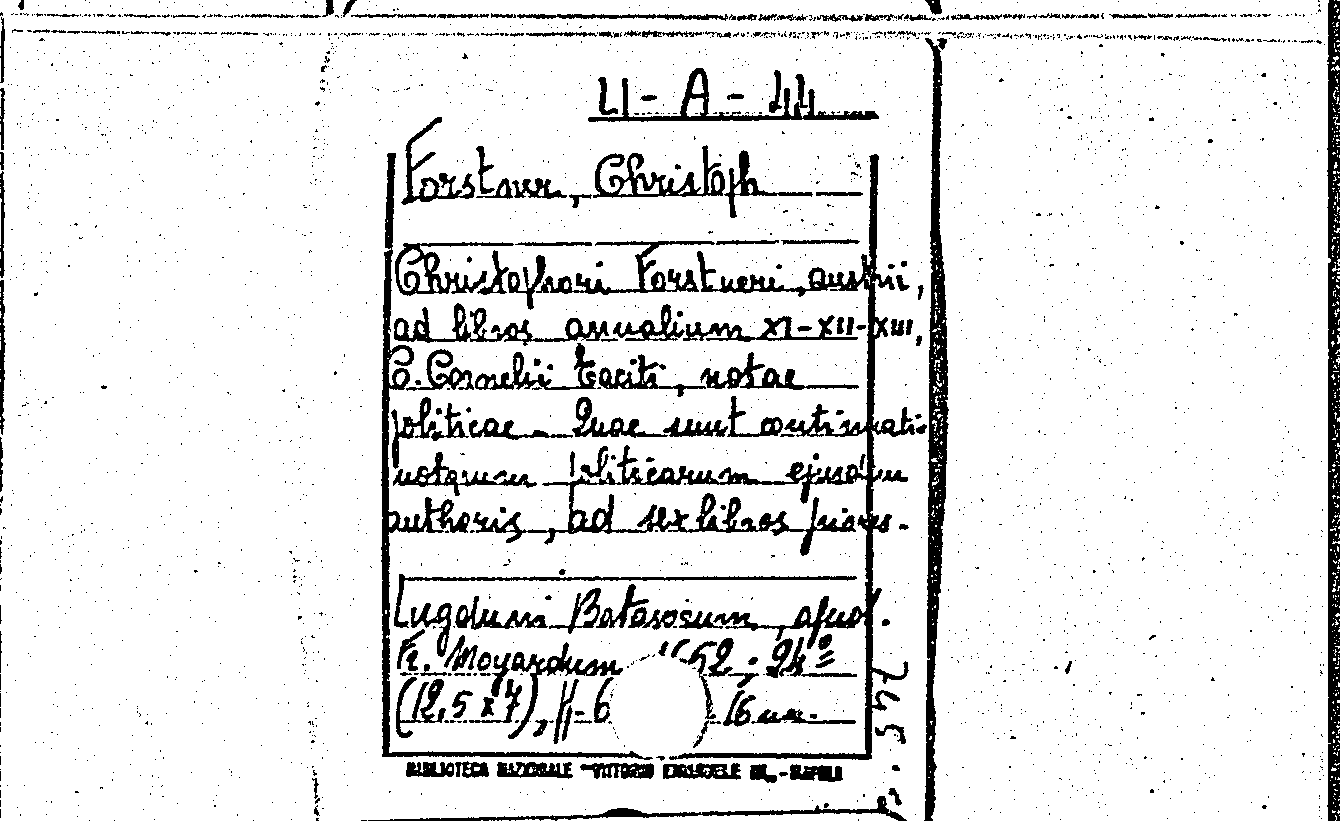 LI - A - 44
Forstner, Christoph
Christophori Forstneri, austrii,
ad libros annalium XI-XII-XIII,
C. Cornelii Taciti, notae
politicae - Quae sunt continuatio
notarum politicarum ejusdem
authoris, ad sex libros priores.
Lugduni Batavorum, apud.
Fr. Moyardum 1652; 24º
(12,5 x 7), ff. 6 16 nn.
BIBLIOTECA NAZIONALE "VITTORIO EMANUELE III" - NAPOLI